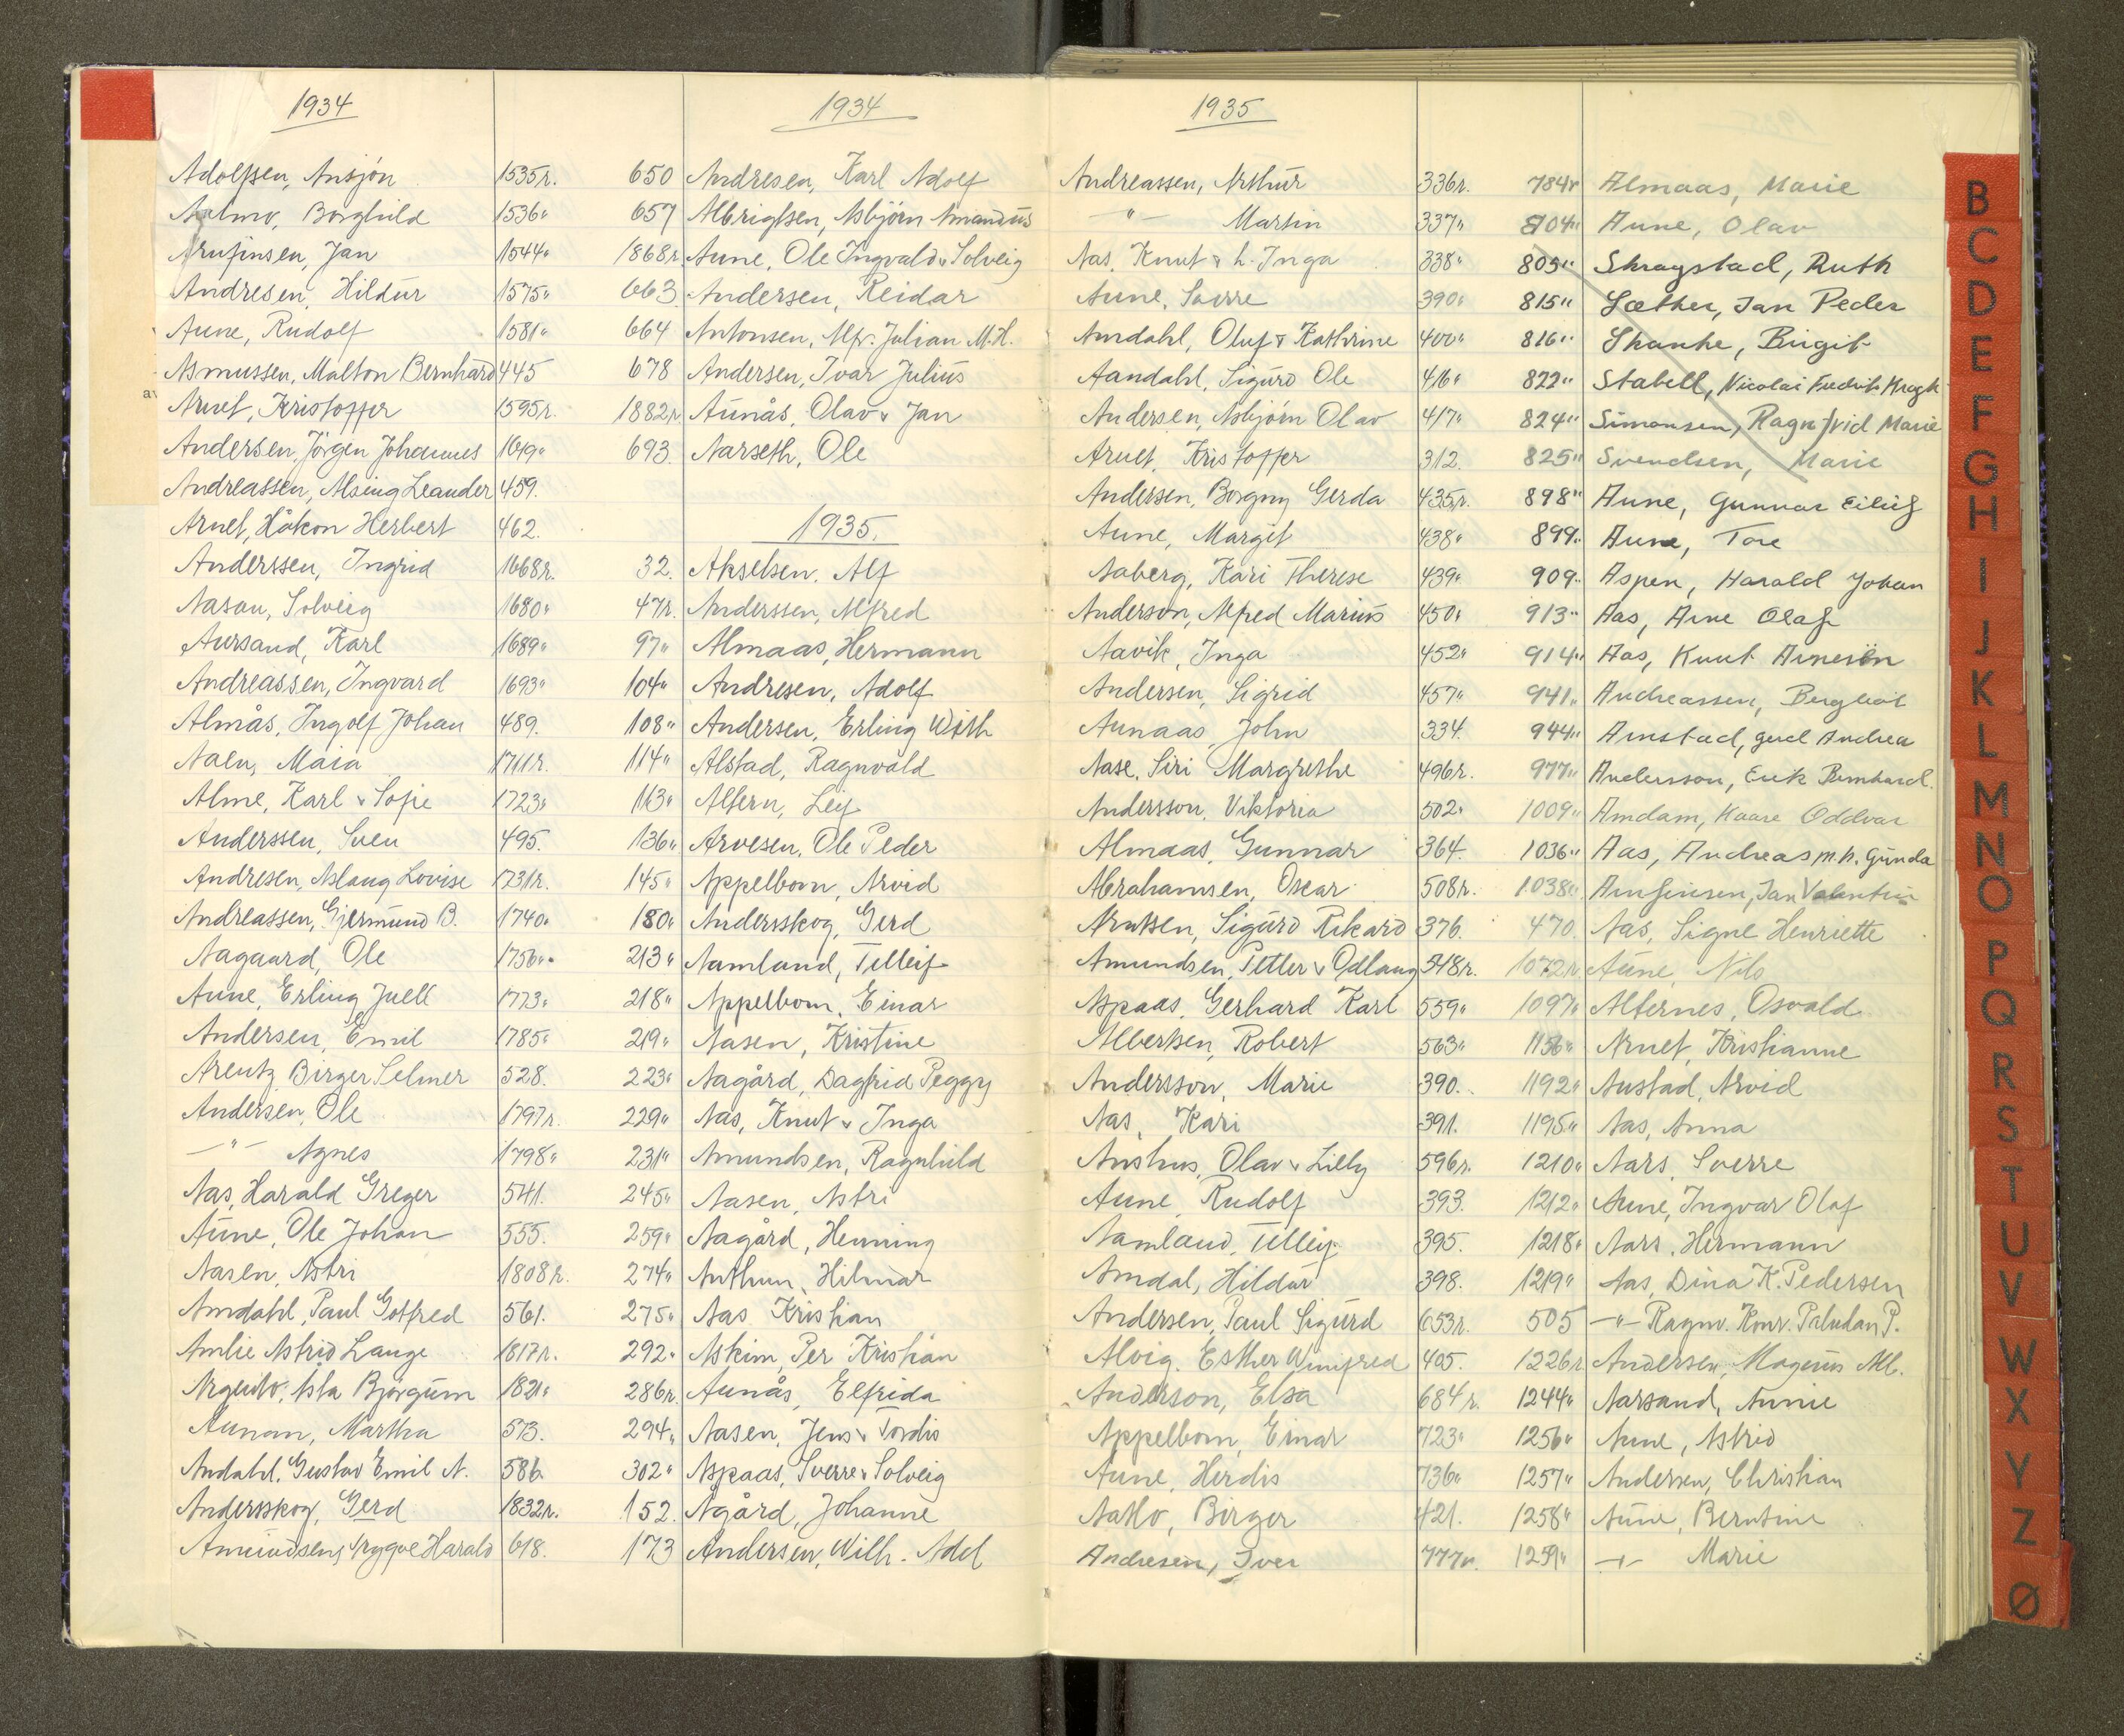 1934
Adolfsen, Ansjón 1535r.
Aalmo, Borghild 1536"
Arnfinsen, Jan 1544"
Andresen, Hildur 1575"
Aune, Rudolf 1581"
Asmussen, Malton Bernhard 445
Arnet, Kristoffer 1595r.
Andersen, Jörgen Johannes 1649"
Andreassen, Alsing Leander 459.
Arnet, Håkon Herbert 462.
Anderssen, Ingrid 1668r.
Aasan, Solveig 1680"
Aursand, Karl 1689"
Andreassen, Ingvard 1693"
Almås, Ingolf Johan 489.
Aalen, Maia 1711r.
Alme, Karl & Sofie 1723"
Anderssen, Sven 495.
Andresen, Aslaug Lovise 1731r.
Andreassen, Gjermund B. 1740"
Aagaard, Ole 1756"
Aune, Erling Juell 1773"
Andersen, Emil 1785"
Arentz, Birger Selmer 528.
Andersen, Ole 1797r.
—"— Agnes 1798"
Aas, Harald Greger 541.
Aune, Ole Johan 555.
Aasen, Astri 1808r.
Amdahl, Paul Gotfred 561.
Amlie Astrid Lange 1817r.
Björgum 1821"
Aunan, Martha 573.
Andahl, Gustav Emil A. 586.
Andersskog, Gerd 1832r.
Amundsen, Trygve Harald 618.
1934
650 Andresen, Karl Adolf
657 Albrigtsen, Asbjörn Amandus
1868r. Aune, Ole Ingvald & Solveig
663. Andersen, Reidar
664 Antonsen, Alfr. Julian M.H.
678 Andersen, Ivar Julius
1882r. Aunås, Olav & Jan
693. Aarseth, Ole
1935.
32. Akselsen, Alf
47r. Anderssen, Alfred
97" Almaas, Hermann
104" Andresen, Adolf
108" Andersen, Erling With
114" Alstad, Ragnvald
113" Alfern, Leif
136" Arvesen, Ole Peder
145" Appelbom, Arvid
180" Andersskog, Gerd
213" Aamland, Telleif
218" Appelbom, Einar
219" Aasen, Kristine
223" Aagård, Dagfrid Peggy
229" Aas, Knut & Inga
231" Amundsen, Ragnhild
245" Aasen, Astri
259" Aagård, Henning
274" Anthun, Hilmar
275" Aas Kristian
292" Askim, Per Kristian
286r. Aunås, Elfrida
294" Aasen, Jens & Tordis
302" Aspaas, Sverre & Solveig
152. Agård, Johanne
173 Andersen, Wilh. Adel
1935
Andreassen, Arthur 336r.
—"— Martin 337"
Aas, Knut & h. Inga 338"
Aune, Sverre 390"
Amdahl, Oluf & Kathrine 400"
Aandahl, Sigurd Ole 416"
Andersen, Asbjörn Olav 417"
Arnet, Kristoffer 312.
Andersen, Borgny Gerda 435r.
Aune, Margit 438"
Aaberg, Kari Therese 439"
Anderson, Alfred Marius 450"
Aavik, Inga 452"
Andersen, Sigrid 457"
Aunaas, John 334.
Aase, Siri Margrethe 496r.
Andersson, Viktoria 502"
Almaas, Gunnar 364.
Abrahamsen, Oscar 508r.
Arntsen, Sigurd Rikard 376.
Amundsen, Petter & Odlaug 548r.
Aspaas, Gerhard Karl 559"
Albertsen, Robert 563"
Andersson, Marie 390.
Aas, Kari 391.
Aushus, Olav & Lilly 596r.
Aune, Rudolf 393.
Aamland, Telleif 395.
Amdal, Hildur 398.
Andersen, Paul Sigurd 653r.
Alvig, Esther Winifred 405.
Anderson, Elsa 684r.
Appelbom, Einar 723"
Aune, Herdis 736"
Aatlo, Birger 421.
Andresen, Iver 777r.
784r Almaas, Marie
804" Aune, Olav
805" Skragstad, Ruth
815" Sæther, Jan Peder
816" Skanke, Birgit
822" Stabell, Nicolai Fredrik Kragh
824" Simonsen, Ragnfrid Marie
825" Svendsen, Marie
898" Aune, Gunnar Eilif
899" Aune, Tore
909" Aspen, Harald Johan
913" Aas, Arne Olaf
914" Aas, Knut Arnesön
941" Andreassen, Bergliot
944" Arnstad, Gerd Andrea
977" Andersson, Erik Bernhard.
1009" Amdam, Kaare Oddvar
1036" Aas, Andreas m.h. Gunda
1038" Arnfinsen, Jan Valentin
470. Aas, Signe Henriette
1072r Aune, Nils
1097" Alfernes, Osvald
1156" Arnet, Kristianne
1192" Austad, Arvid
1195" Aas, Anna
1210" Aars, Sverre
1212" Aune, Ingvar Olaf
1218" Aars, Hermann
1219" Aas, Dina K. Pedersen
505 —"— Ragnv. Konr. Paludan P.
1226r Andersen, Magnus Alb.
1244" Aarsand, Annie
1256" Aune, Astrid
1257" Andersen, Christian
1258" Aune, Berntine
1259" —"— Marie
B
C
D
E
F
G
H
I
J
K
L
M
N
O
P
Q
R
S
T
U
V
W
X
Y
Z
Ø